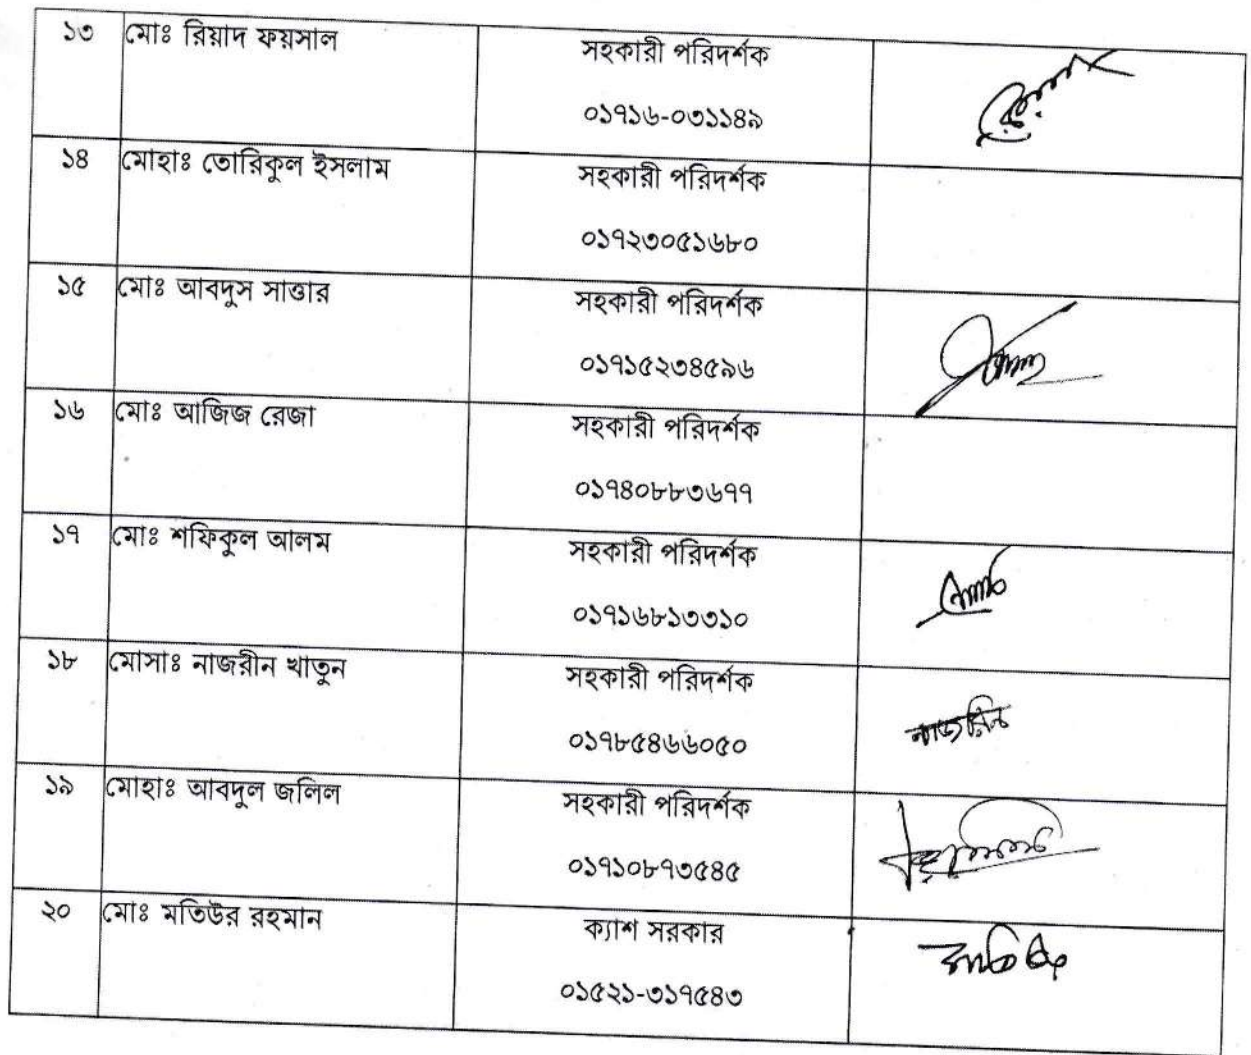 ১৩ মোঃ রিয়াদ ফয়সাল সহকারী পরিদর্শক
০১৭১৬-০৩১১৪৯
১৪ মোহাঃ তোরিকুল ইসলাম সহকারী পরিদর্শক
০১৭২৩০৫১৬৮০
১৫ মোঃ আবদুস সাত্তার সহকারী পরিদর্শক
০১৭১৫২৩৪৫৯৬
১৬ মোঃ আজিজ রেজা সহকারী পরিদর্শক
০১৭৪০৮৮৩৬৭৭
১৭ মোঃ শফিকুল আলম সহকারী পরিদর্শক
০১৭১৬৮১৩৩১০
১৮ মোসাঃ নাজরীন খাতুন সহকারী পরিদর্শক
০১৭৮৫৪৬৬০৫০ নাজরিন
১৯ মোহাঃ আবদুল জলিল সহকারী পরিদর্শক
০১৭১০৮৭৩৫৪৫
২০ মোঃ মতিউর রহমান ক্যাশ সরকার
০১৫২১-৩১৭৫৪৩